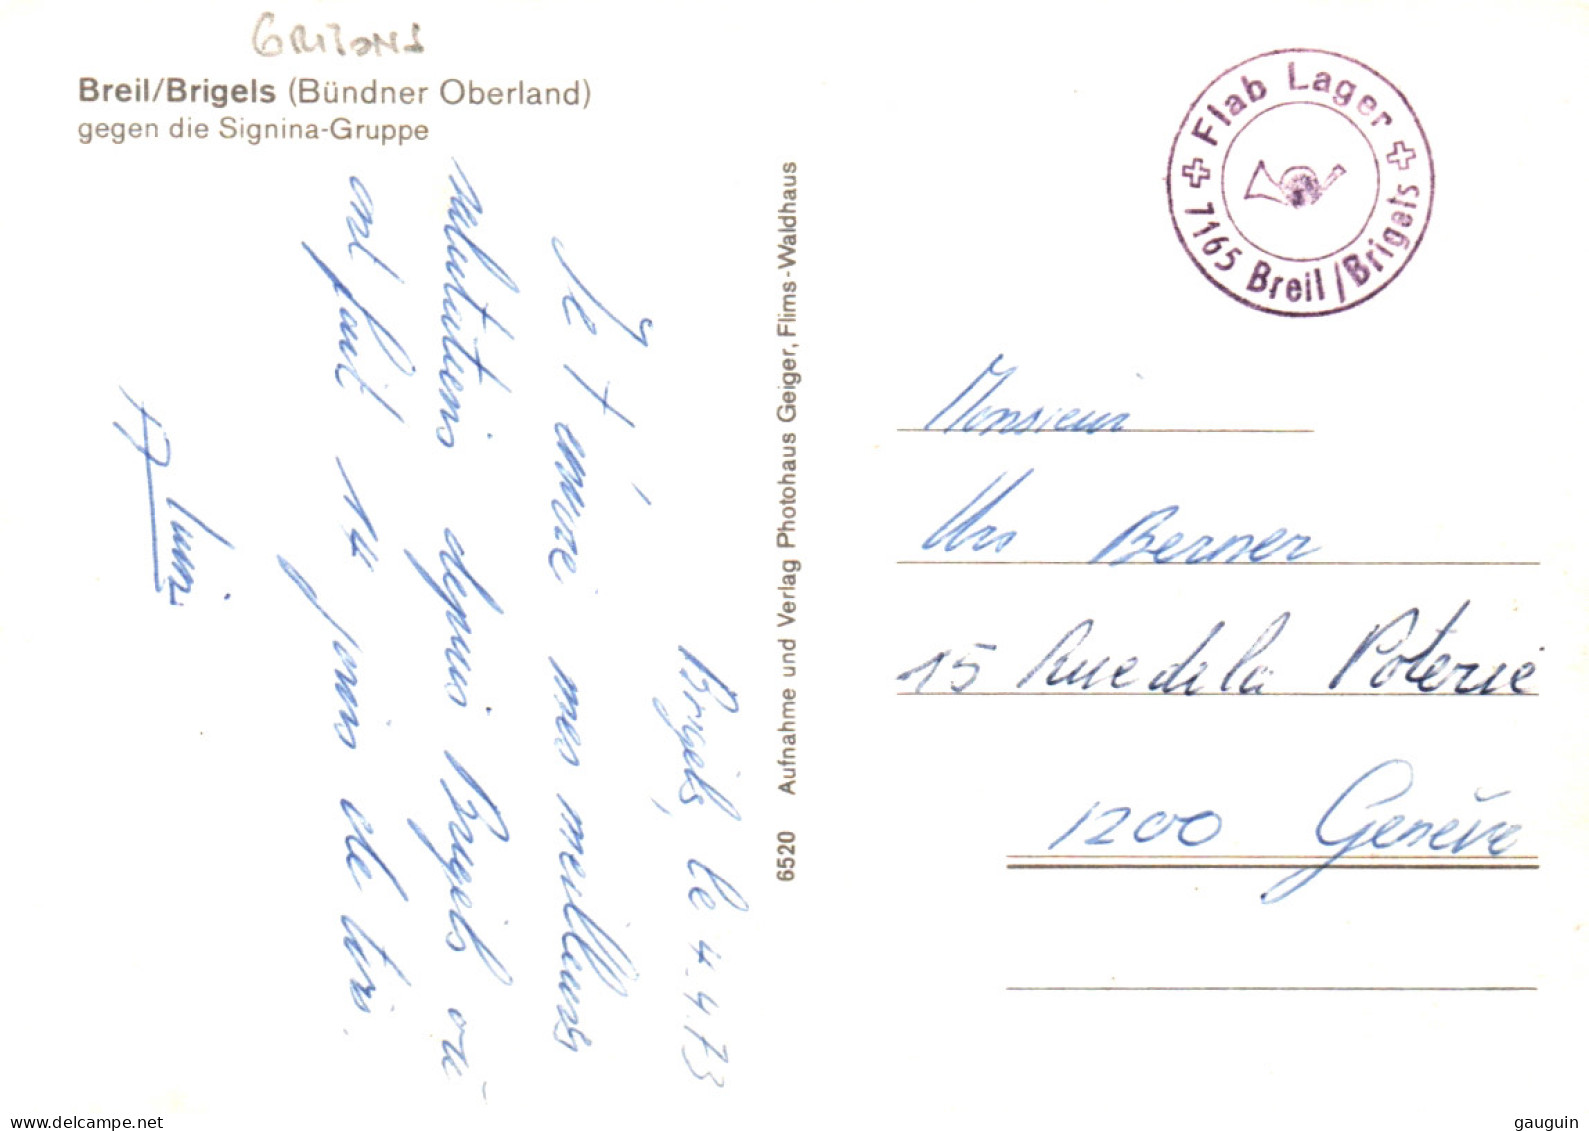 GRISONS
Breil/Brigels (Bündner Oberland)
gegen die Signina-Gruppe
Brigels, le 4.4.73
Je t'envoie mes meilleures
salutations depuis Brigels où
ont fait 14 jours de tirs.
6520 Aufnahme und Verlag Photohaus Geiger, Flims-Waldhaus
Flab Lager
7165 Breil/Brigels
Monsieur
Urs Berner
15 Rue de la Poterie
1200 Genève
delcampe.net
gauguin